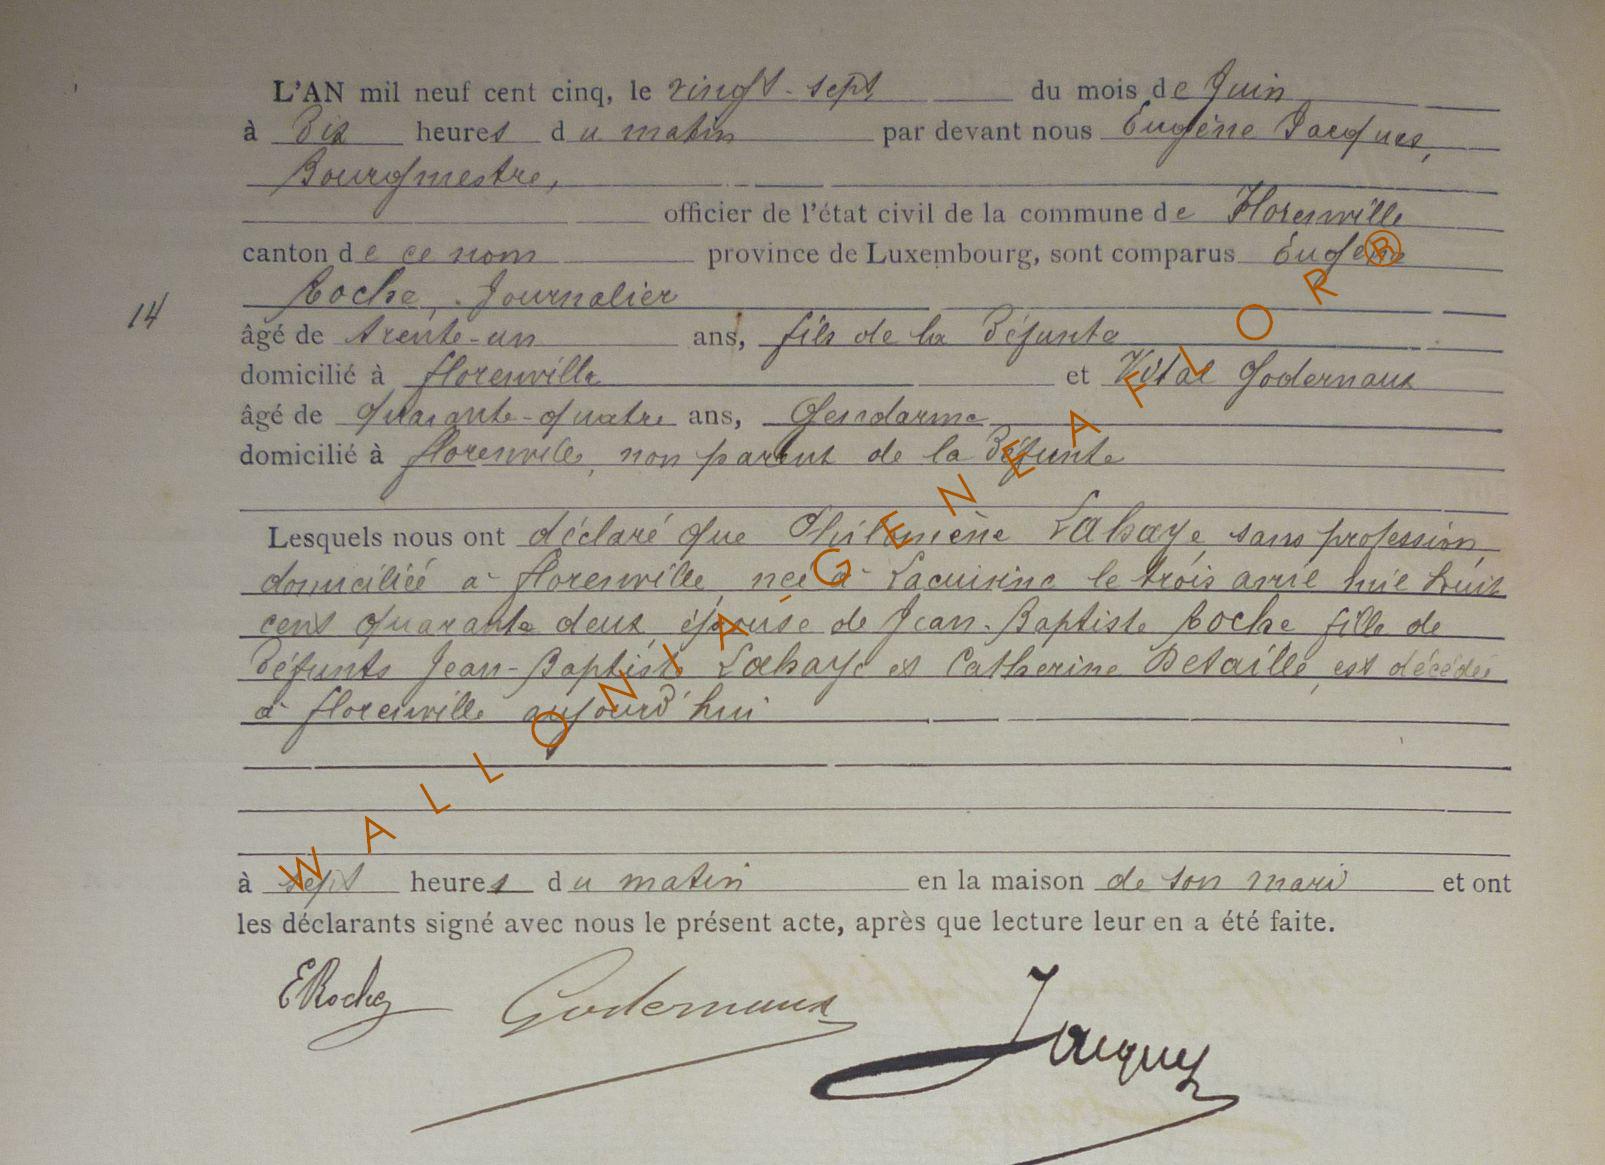 L'AN mil neuf cent cinq, le vingt-sept du mois de Juin
à Dix heures du matin par devant nous Eugène Jacques,
Bourgmestre,
officier de l'état civil de la commune de Florenville
canton de ce nom province de Luxembourg, sont comparus Eugène
Roche, Journalier
14
âgé de trente-un ans, fils de la Défunte
domicilié à florenville et Vital Godernaux
âgé de quarante-quatre ans, Gendarme
domicilié à florenville, non parent de la Défunte
Lesquels nous ont déclaré que Philomène Lahaye, sans profession,
domiciliée à florenville, née à Lacuisine le trois avril mil huit
cent quarante deux, épouse de Jean-Baptiste Roche fille de
Défunts Jean-Baptiste Lahaye et Catherine Detaille, est décédée
à florenville aujourd'hui
à sept heures du matin en la maison de son mari et ont
les déclarants signé avec nous le présent acte, après que lecture leur en a été faite.
ERoche Godernaux Jacques
WALLONIA-GENEAFLOR®